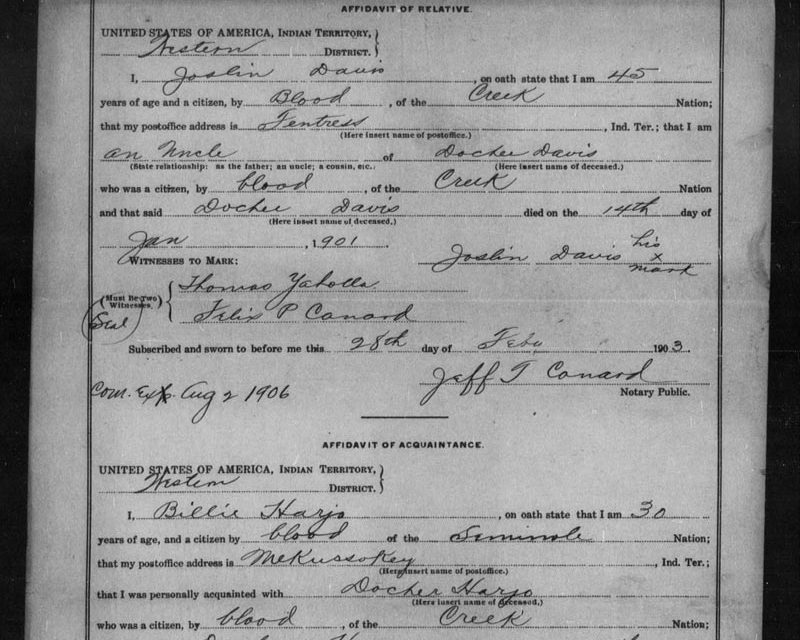 AFFIDAVIT OF RELATIVE.
UNITED STATES OF AMERICA, INDIAN TERRITORY, }
Western DISTRICT.
I, Joslin Davis, on oath state that I am 45
years of age and a citizen, by Blood, of the Creek Nation;
that my postoffice address is Fentress, Ind. Ter.; that I am
(Here insert name of postoffice.)
an Uncle of Docher Davis
(State relationship: as the father; an uncle; a cousin, etc.. (Here insert name of deceased.)
who was a citizen, by blood, of the Creek Nation
and that said Docher Davis died on the 14th day of
(Here insert name of deceased.)
Jan, 1901.
Joslin Davis his x mark
WITNESSES TO MARK:
(Must Be Two Witnesses.) { Thomas Yaholla
(Seal) Felix P Canard
Subscribed and sworn to before me this 28th day of Feby 1903
Jeff T Canard
Com. Exp. Aug 2 1906 Notary Public.
AFFIDAVIT OF ACQUAINTANCE.
UNITED STATES OF AMERICA, INDIAN TERRITORY, }
Western DISTRICT.
I, Billie Harjo, on oath state that I am 30
years of age, and a citizen by blood of the Seminole Nation;
that my postoffice address is Mekussokey, Ind. Ter.;
(Here insert name of postoffice.)
that I was personally acquainted with Docher Harjo
(Here insert name of deceased.)
who was a citizen, by blood, of the Creek Nation;